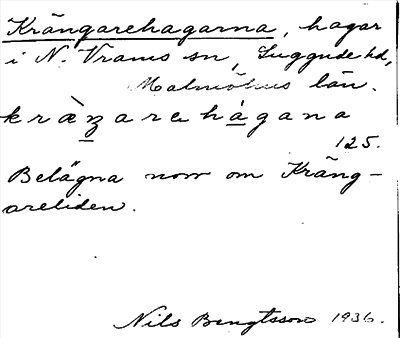 Krängarehagarna, hagar
i N. Vrams sn, Luggude hd,
Malmöhus län.
kràŋarehágana
125.
Belägna norr om Kräng-
areliden.
Nils Bengtsson 1936.